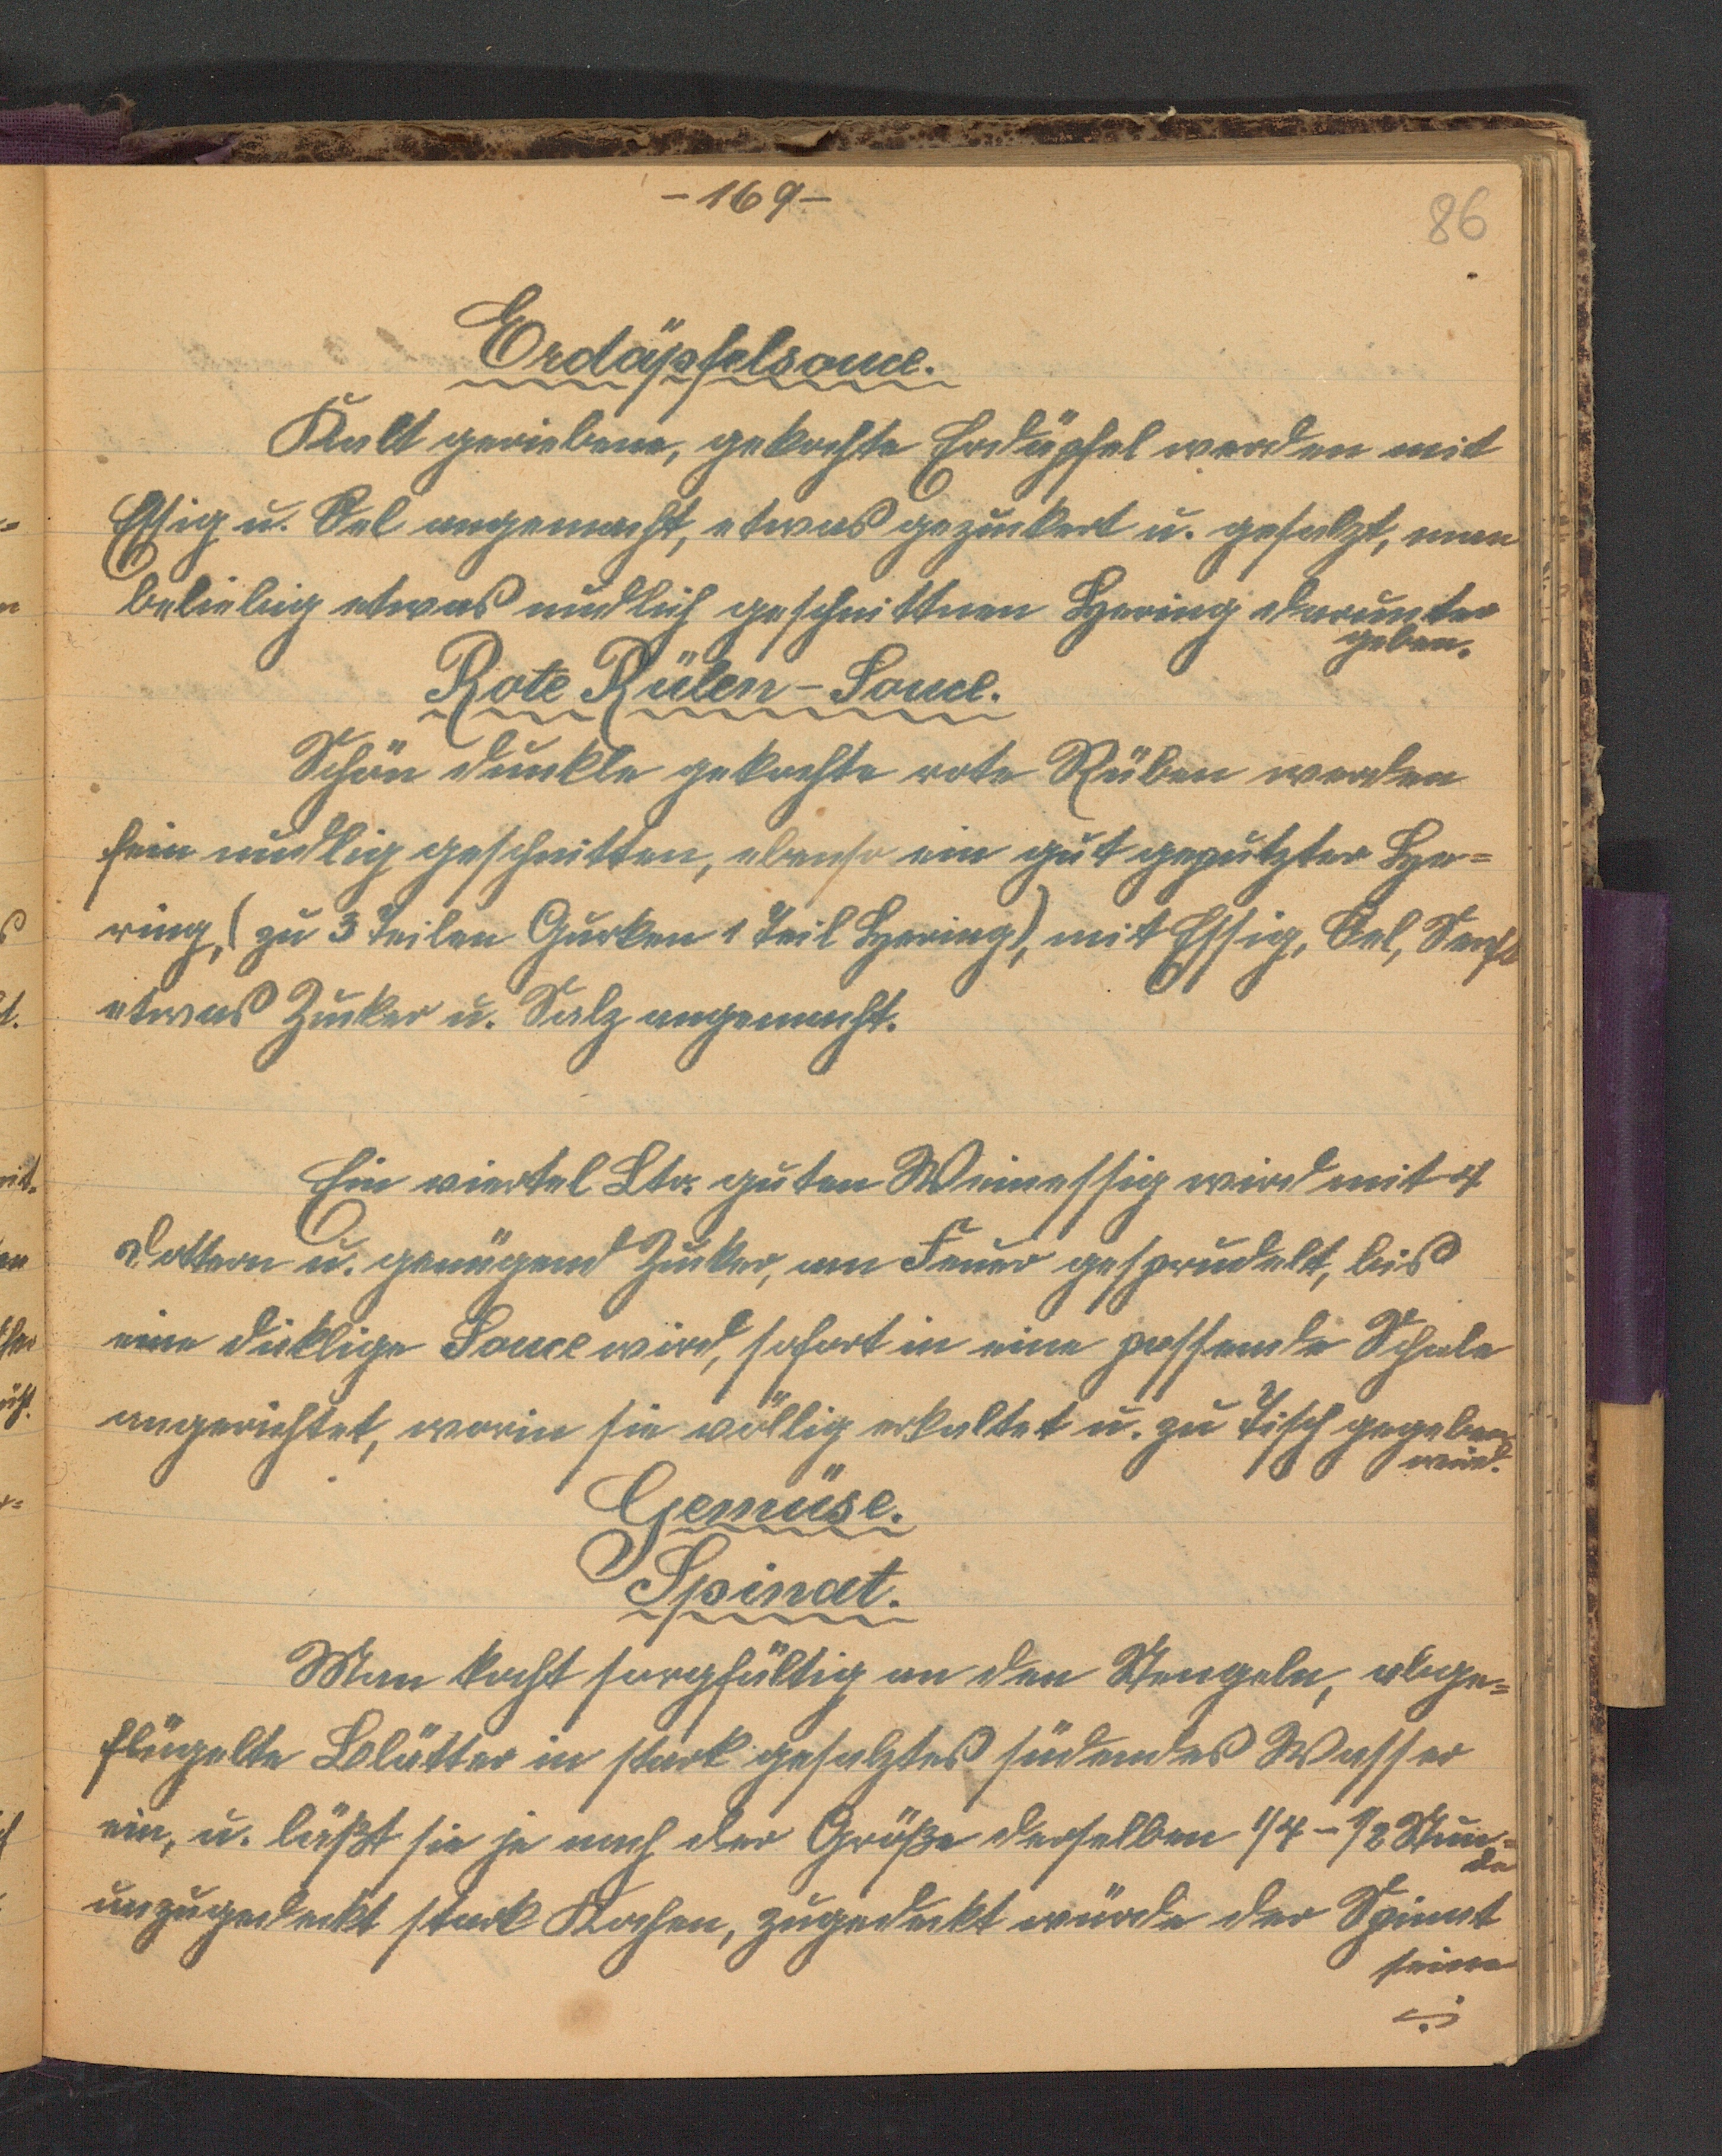 -169-
86
Erdäpfelsauce.
Kalt geriebene, gekochte Erdäpfel werden mit
Essig u. Oel angemacht, etwas gezuckert u. gesalzt, man
beliebig etwas nudlich geschnittnen Hering darunter
geben.
Rote Rüben-Sauce.
Schön dunkle gekochte rote Rüben werden
fein nudlig geschnitten, ebenso ein gut geputzter He=
ring, (zu 3 Teilen Gurken 1 Teil Hering), mit Essig, Oel, Senft
etwas Zucker u. Salz angemacht.
Ein viertel Ltr. guten Weinessig wird mit 4
Dottern u. genügend Zucker, am Feuer gesprudelt, bis
eine dicklige Sauce wird, sofort in eine passende Schale
angerichtet, worin sie völlig erkaltet u. zu Tisch gegeben
wird.
Gemüse.
Spinat.
Man kocht sorgfältig an den Stengeln, abge=
flügelte Blätter in stark gesalztes südendes Wasser
ein, u. läßt sie je nach der Größe derselben 1/4 - 1/2 Stun=
de
unzugedeckt stark Kochen, zugedeckt würde der Spinat
seine